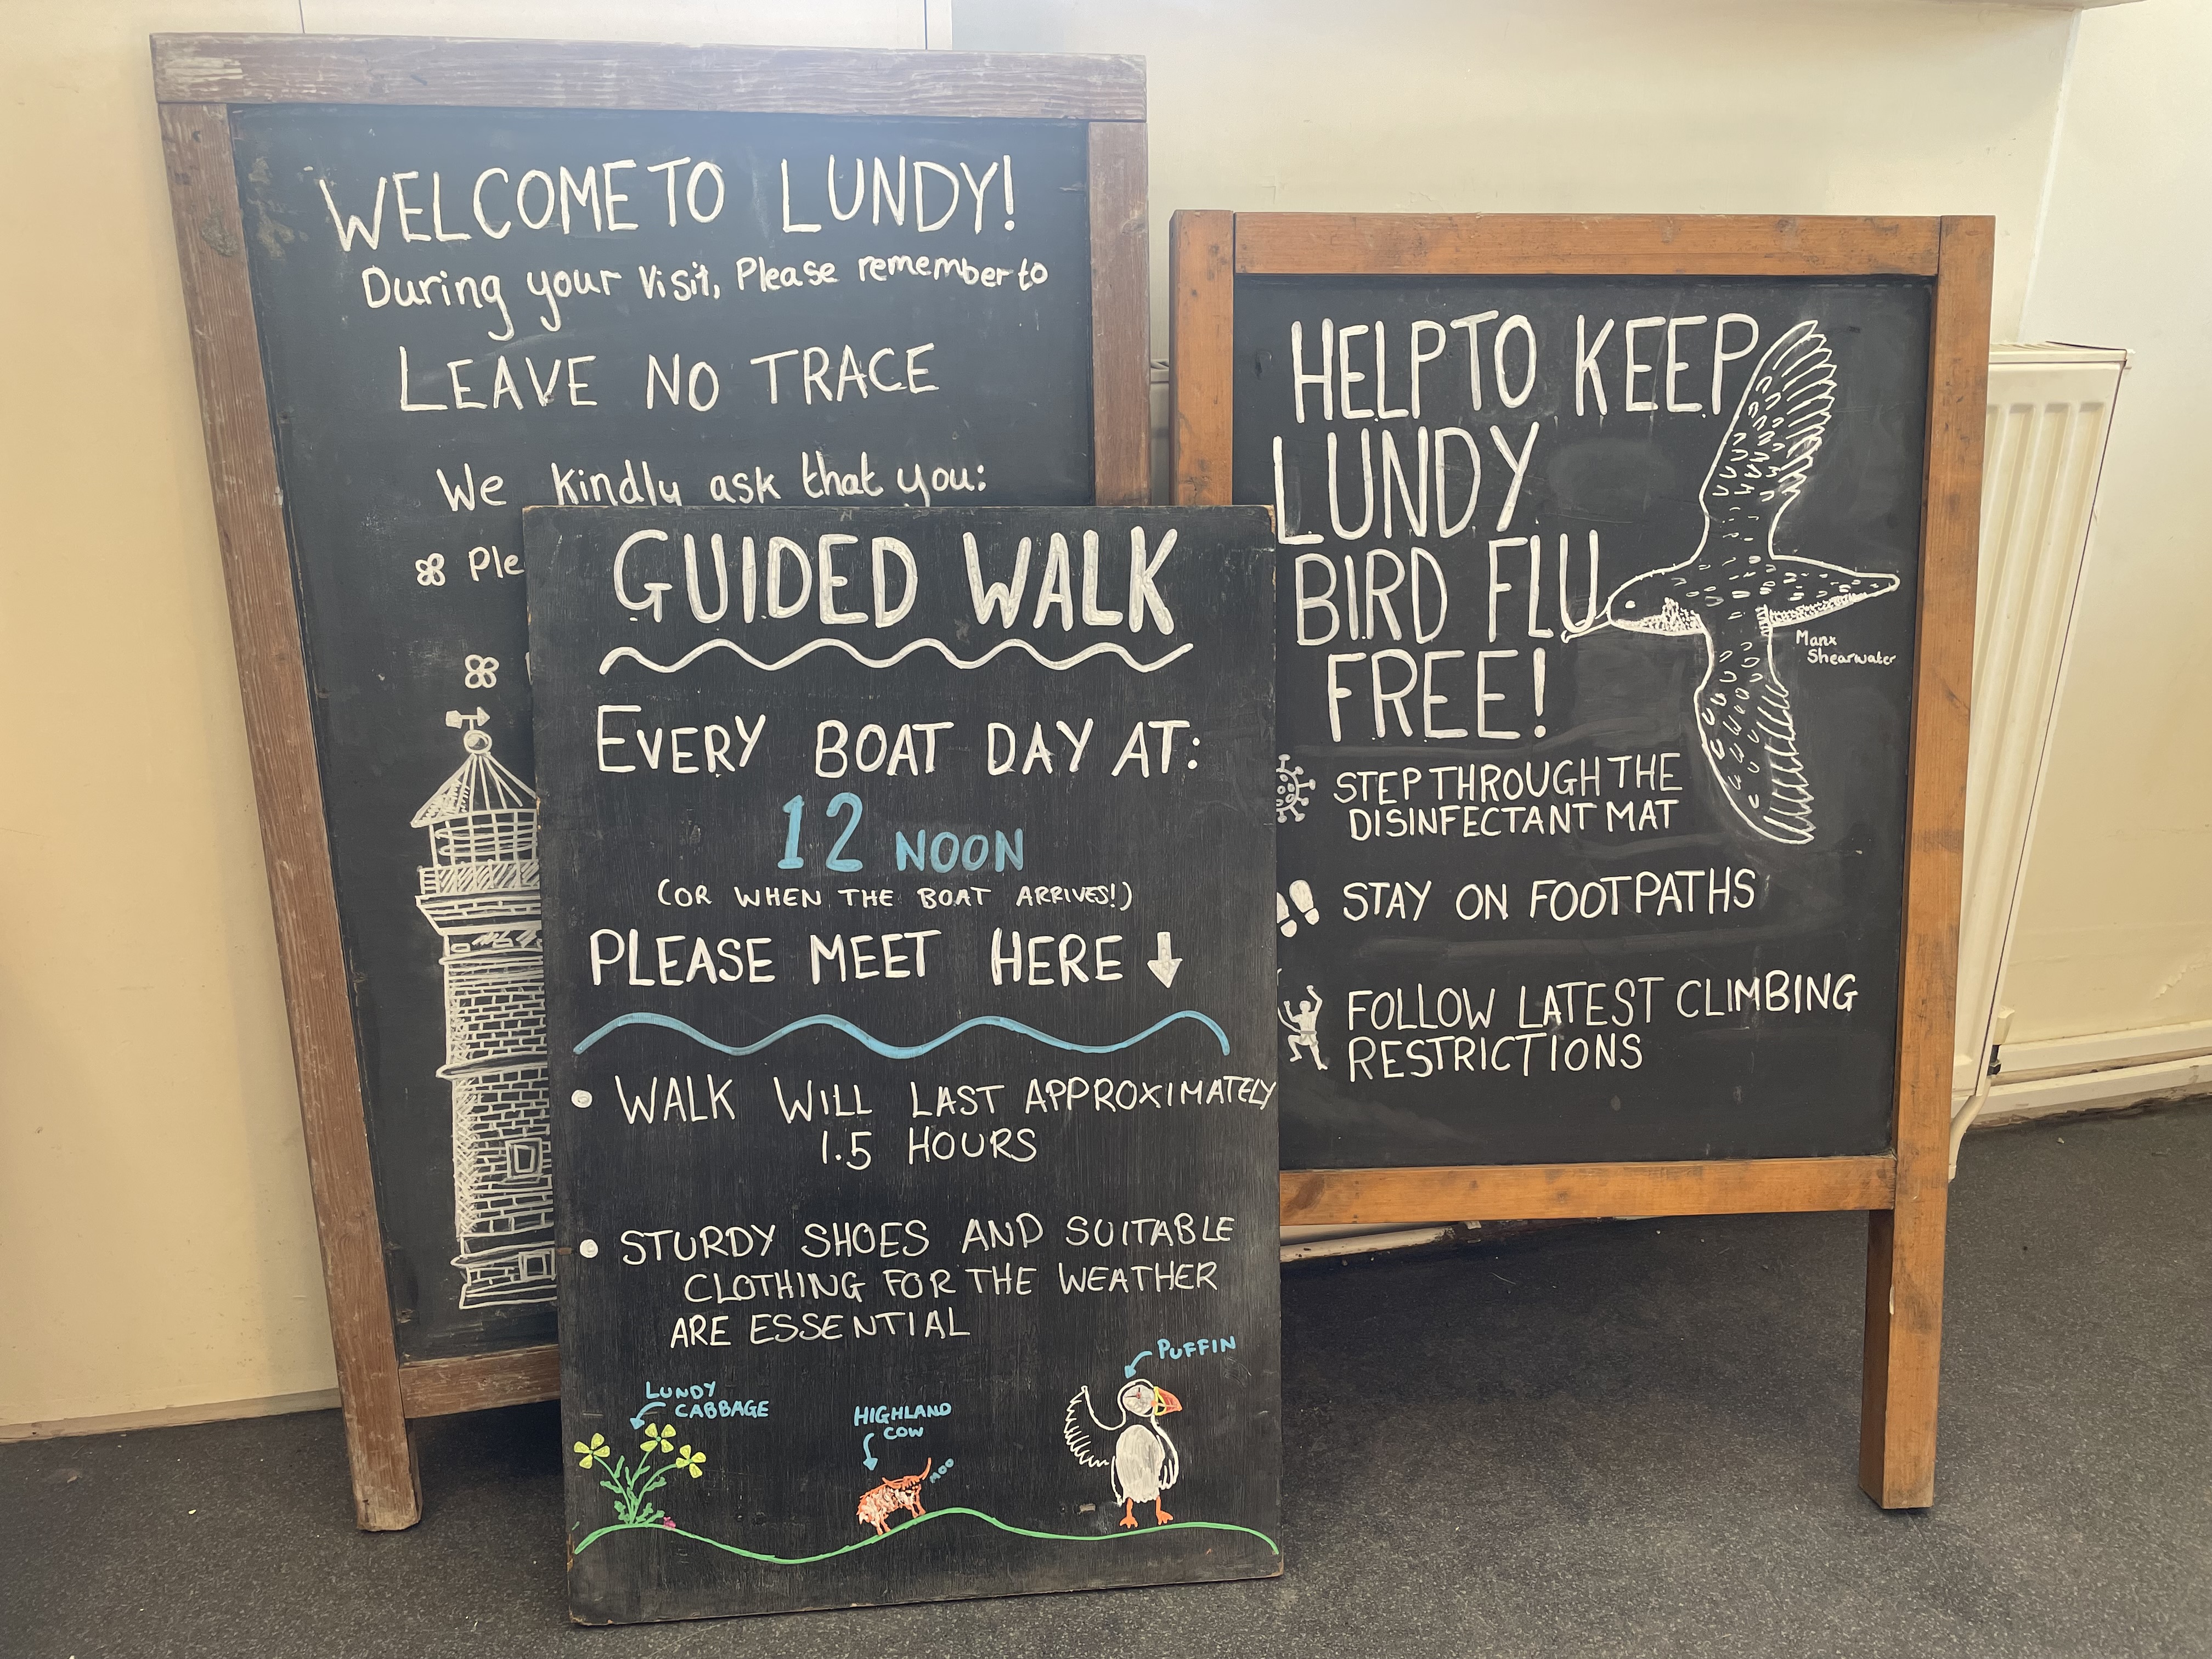 WELCOME TO LUNDY!
During your Visit, Please remember to
LEAVE NO TRACE
We kindly ask that you:
GUIDED WALK
EVERY BOAT DAY AT:
12 NOON
(OR WHEN THE BOAT ARRIVES!)
PLEASE MEET HERE
WALK WILL LAST APPROXIMATELY
1.5 HOURS
STURDY SHOES AND SUITABLE
CLOTHING FOR THE WEATHER
ARE ESSENTIAL
PUFFIN
LUNDY
CABBAGE
HIGHLAND
COW
MOO
HELP TO KEEP
LUNDY
BIRD FLU
FREE!
Manx
Shearwater
STEP THROUGH THE
DISINFECTANT MAT
STAY ON FOOTPATHS
FOLLOW LATEST CLIMBING
RESTRICTIONS